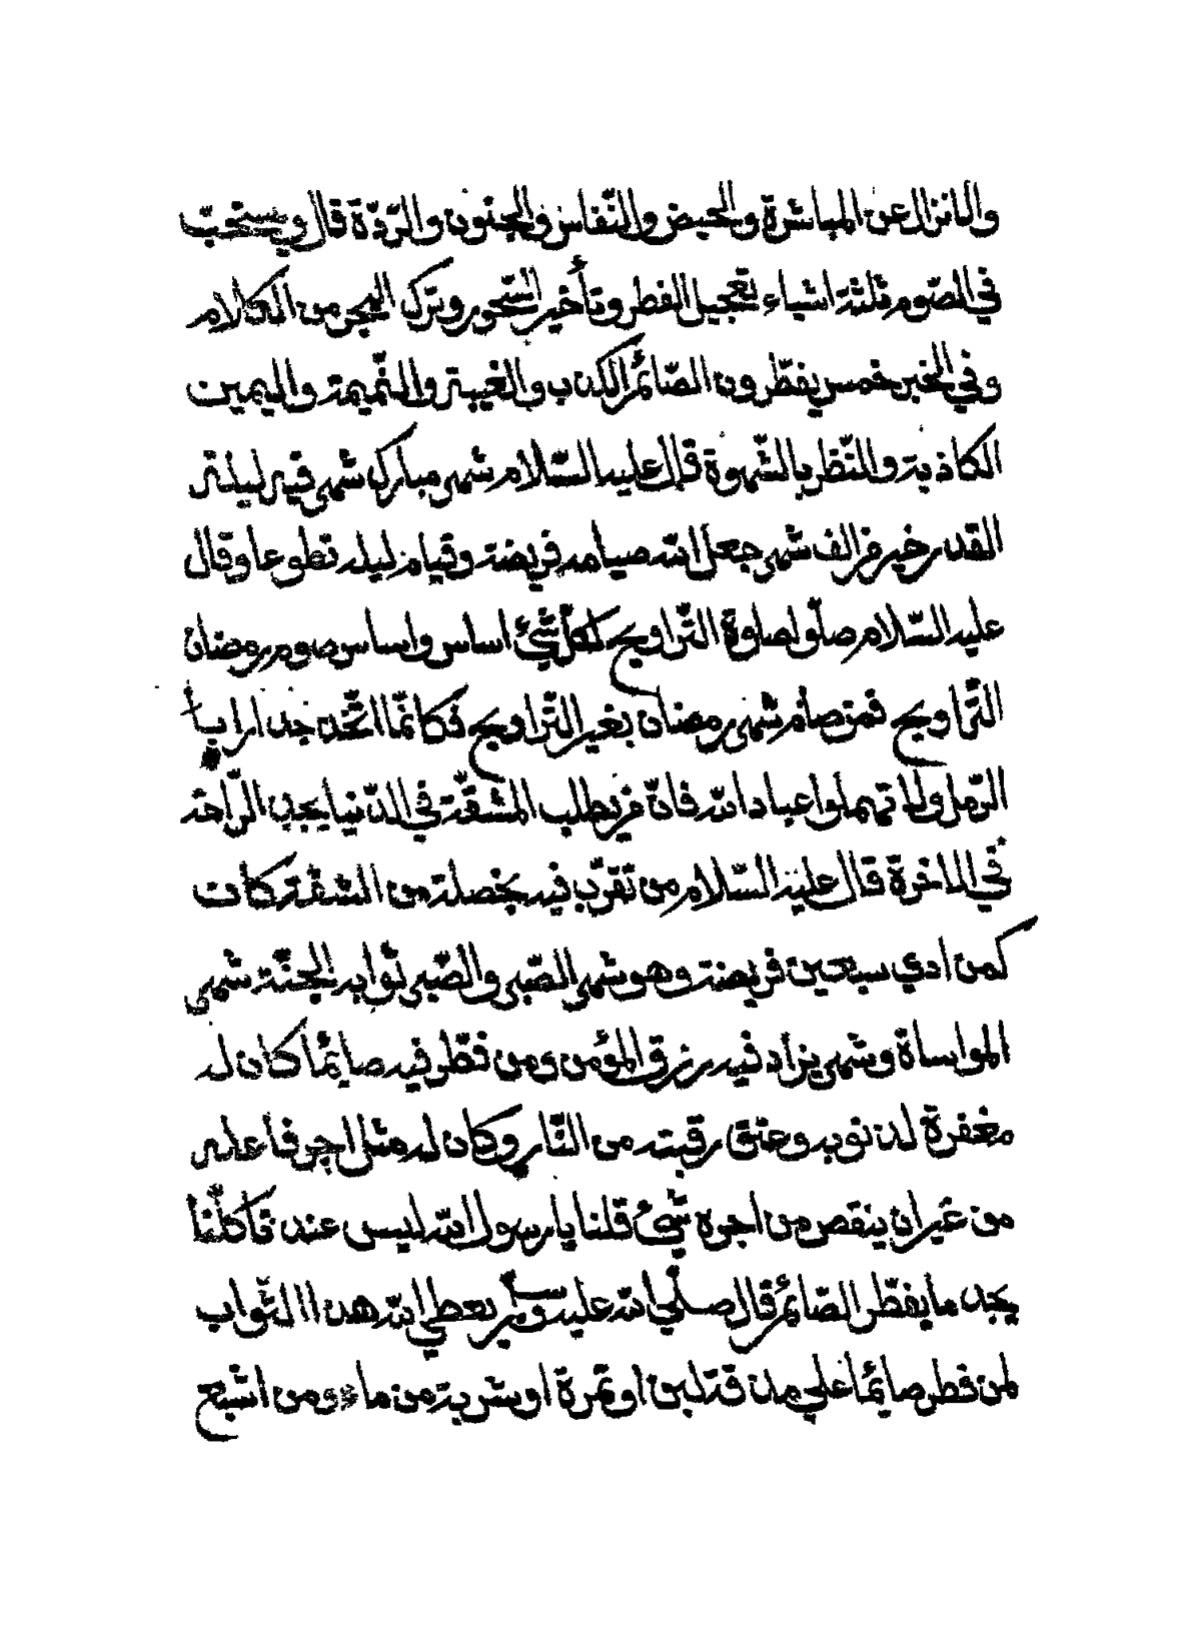 والانزال عن المباشرة والحيض والنّفاس والجنون والرّدّة قال ويستحبّ
في الصّوم ثلثة اشياء تعجيل الفطر وتأخير السّحور وترك الهجر من الكلام
وفي الخبر خمس يفطّرون الصّائم الكذب والغيبة والنّميمة واليمين
الكاذبة والنّظر بالشّهوة قال عليه السّلام شهر مبارك شهر فيه ليلة
القدر خير من الف شهر جعل الله صيامه فريضة وقيام ليله تطوعا وقال
عليه السّلام صلّوا صلوة التّراويح لكلّ شئ اساس واساس صوم رمضان
التّراويح فمن صام شهر رمضان بغير التّراويح فكانّما اتّخذ جدارا بأ
الرّمل ولا تهملوا عباد الله فانّ من يطلب المشقّة في الدّنيا يجد الرّاحة
في الاخرة قال عليه السّلام من تقرّب فيه بخصلة من الشفقة كات
كمن ادي سبعين فريضة وهو شهر الصّبر والصّبر ثوابه الجنّة شهر
المواساة وشهر يزاد فيه رزق المؤمن ومن فطّر فيه صائما كان له
مغفرة لذنوبه وعتق رقبته من النّار وكان له مثل اجر فاعله
من غير ان ينقص من اجره شئ قلنا يا رسول الله ليس عند كلّنا
يجد ما يفطّر الصّائم قال صلّي الله عليه وسلم يعطي الله هذا الثواب
لمن فطر صائما علي مذقة لبن او تمرة او شربة من ماء ومن اشبع